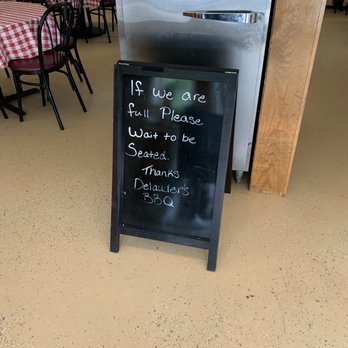 If we are
full Please
Wait to be
Seated.
Thanks
Delauder's
BBQ